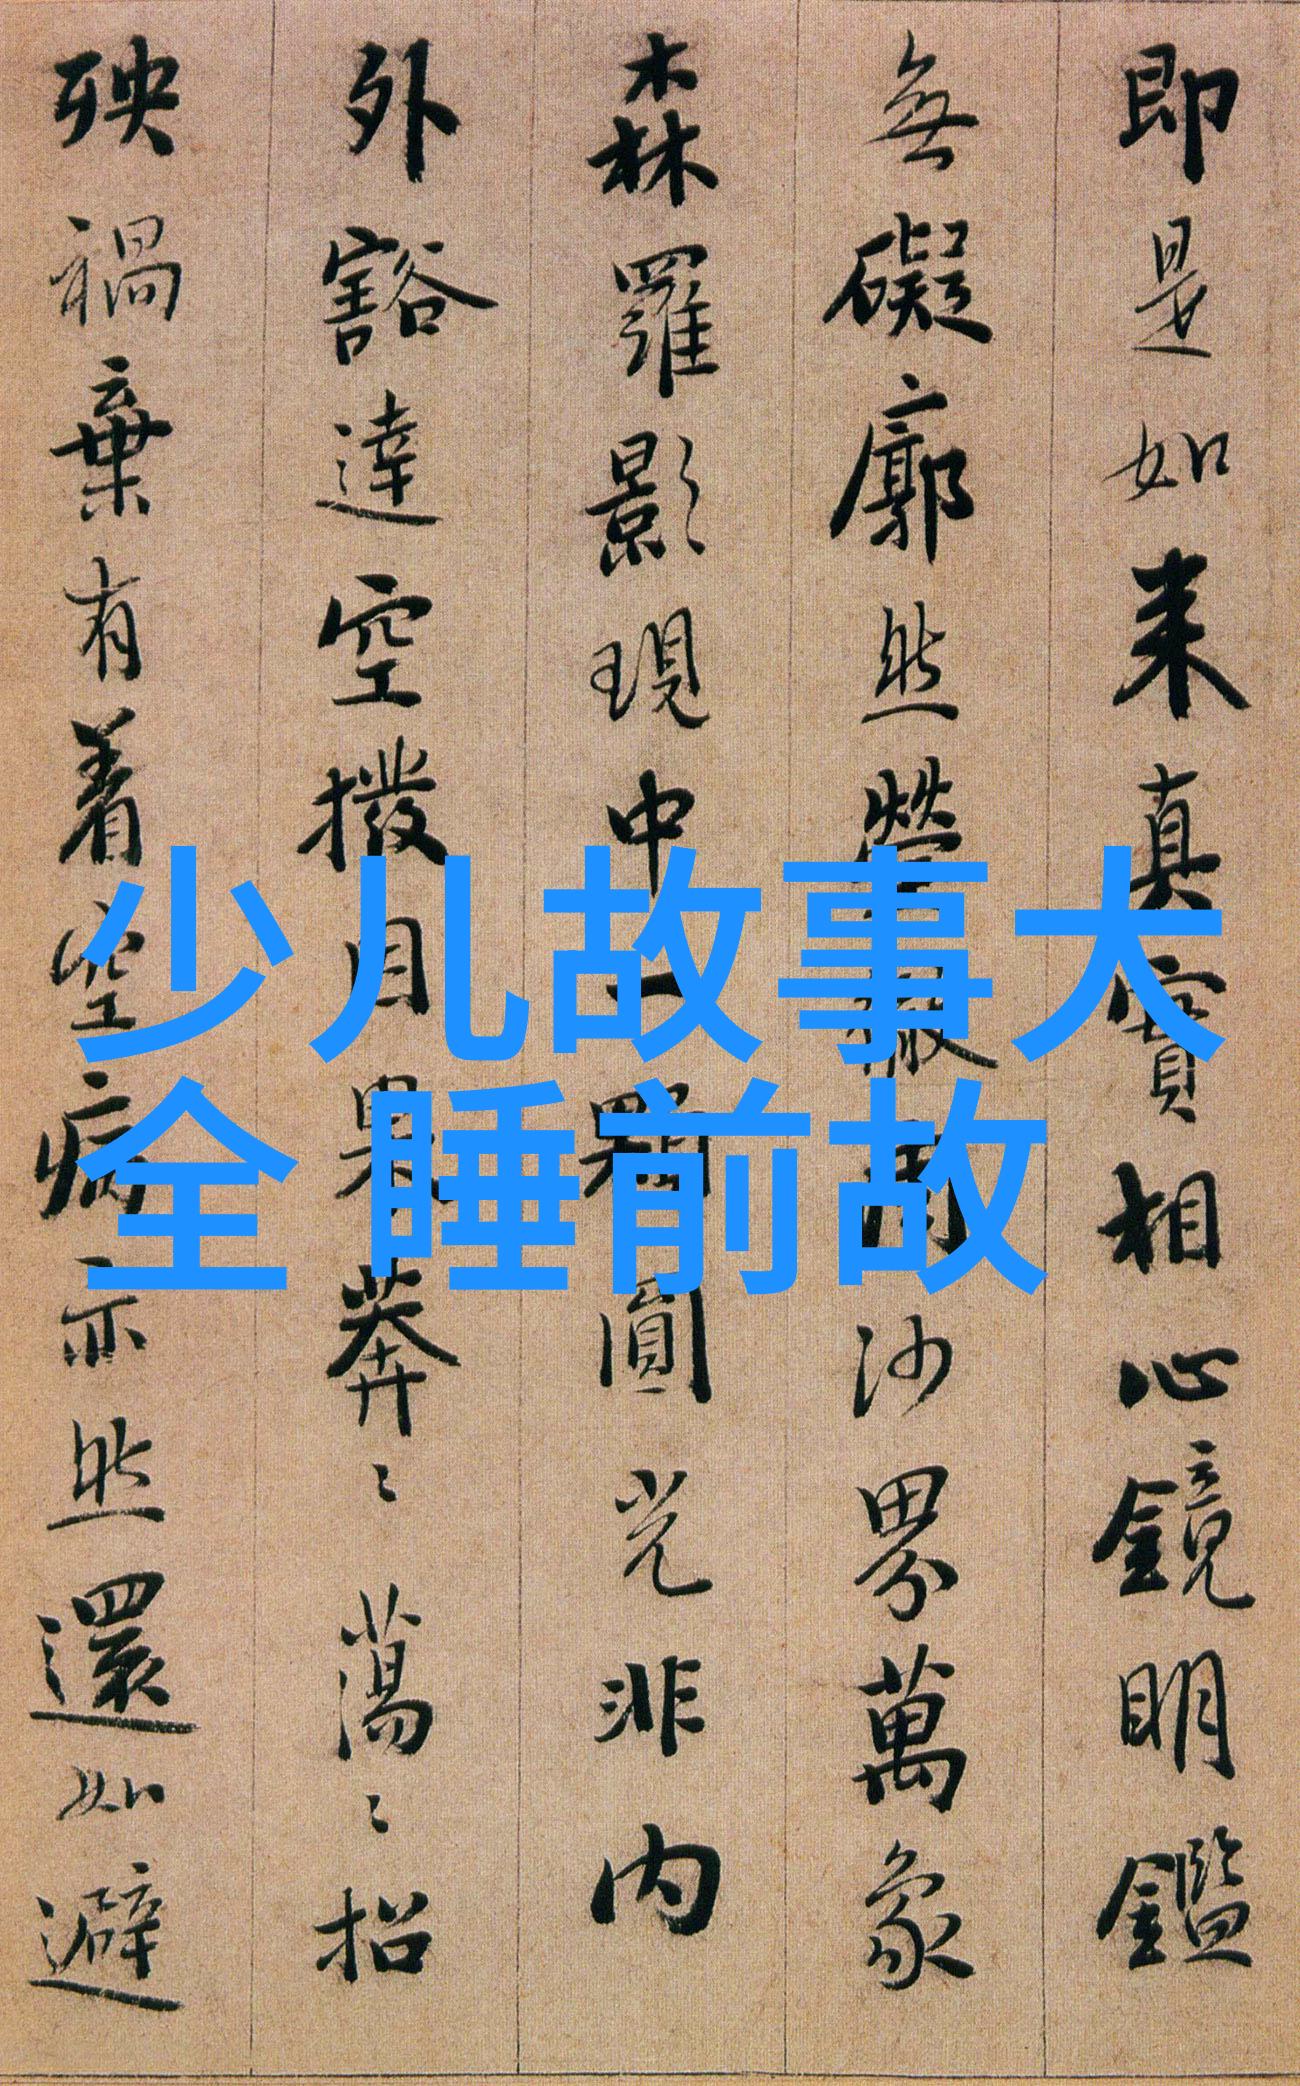 即是如来真實相心鏡明鑑
無礙廓然瑩徹周沙界萬象
森羅影現中一顆圓光非内
外豁達空撥因果莽〻蕩〻招
殃禍棄有着空病亦然還如避
少儿故事大
全 睡前故